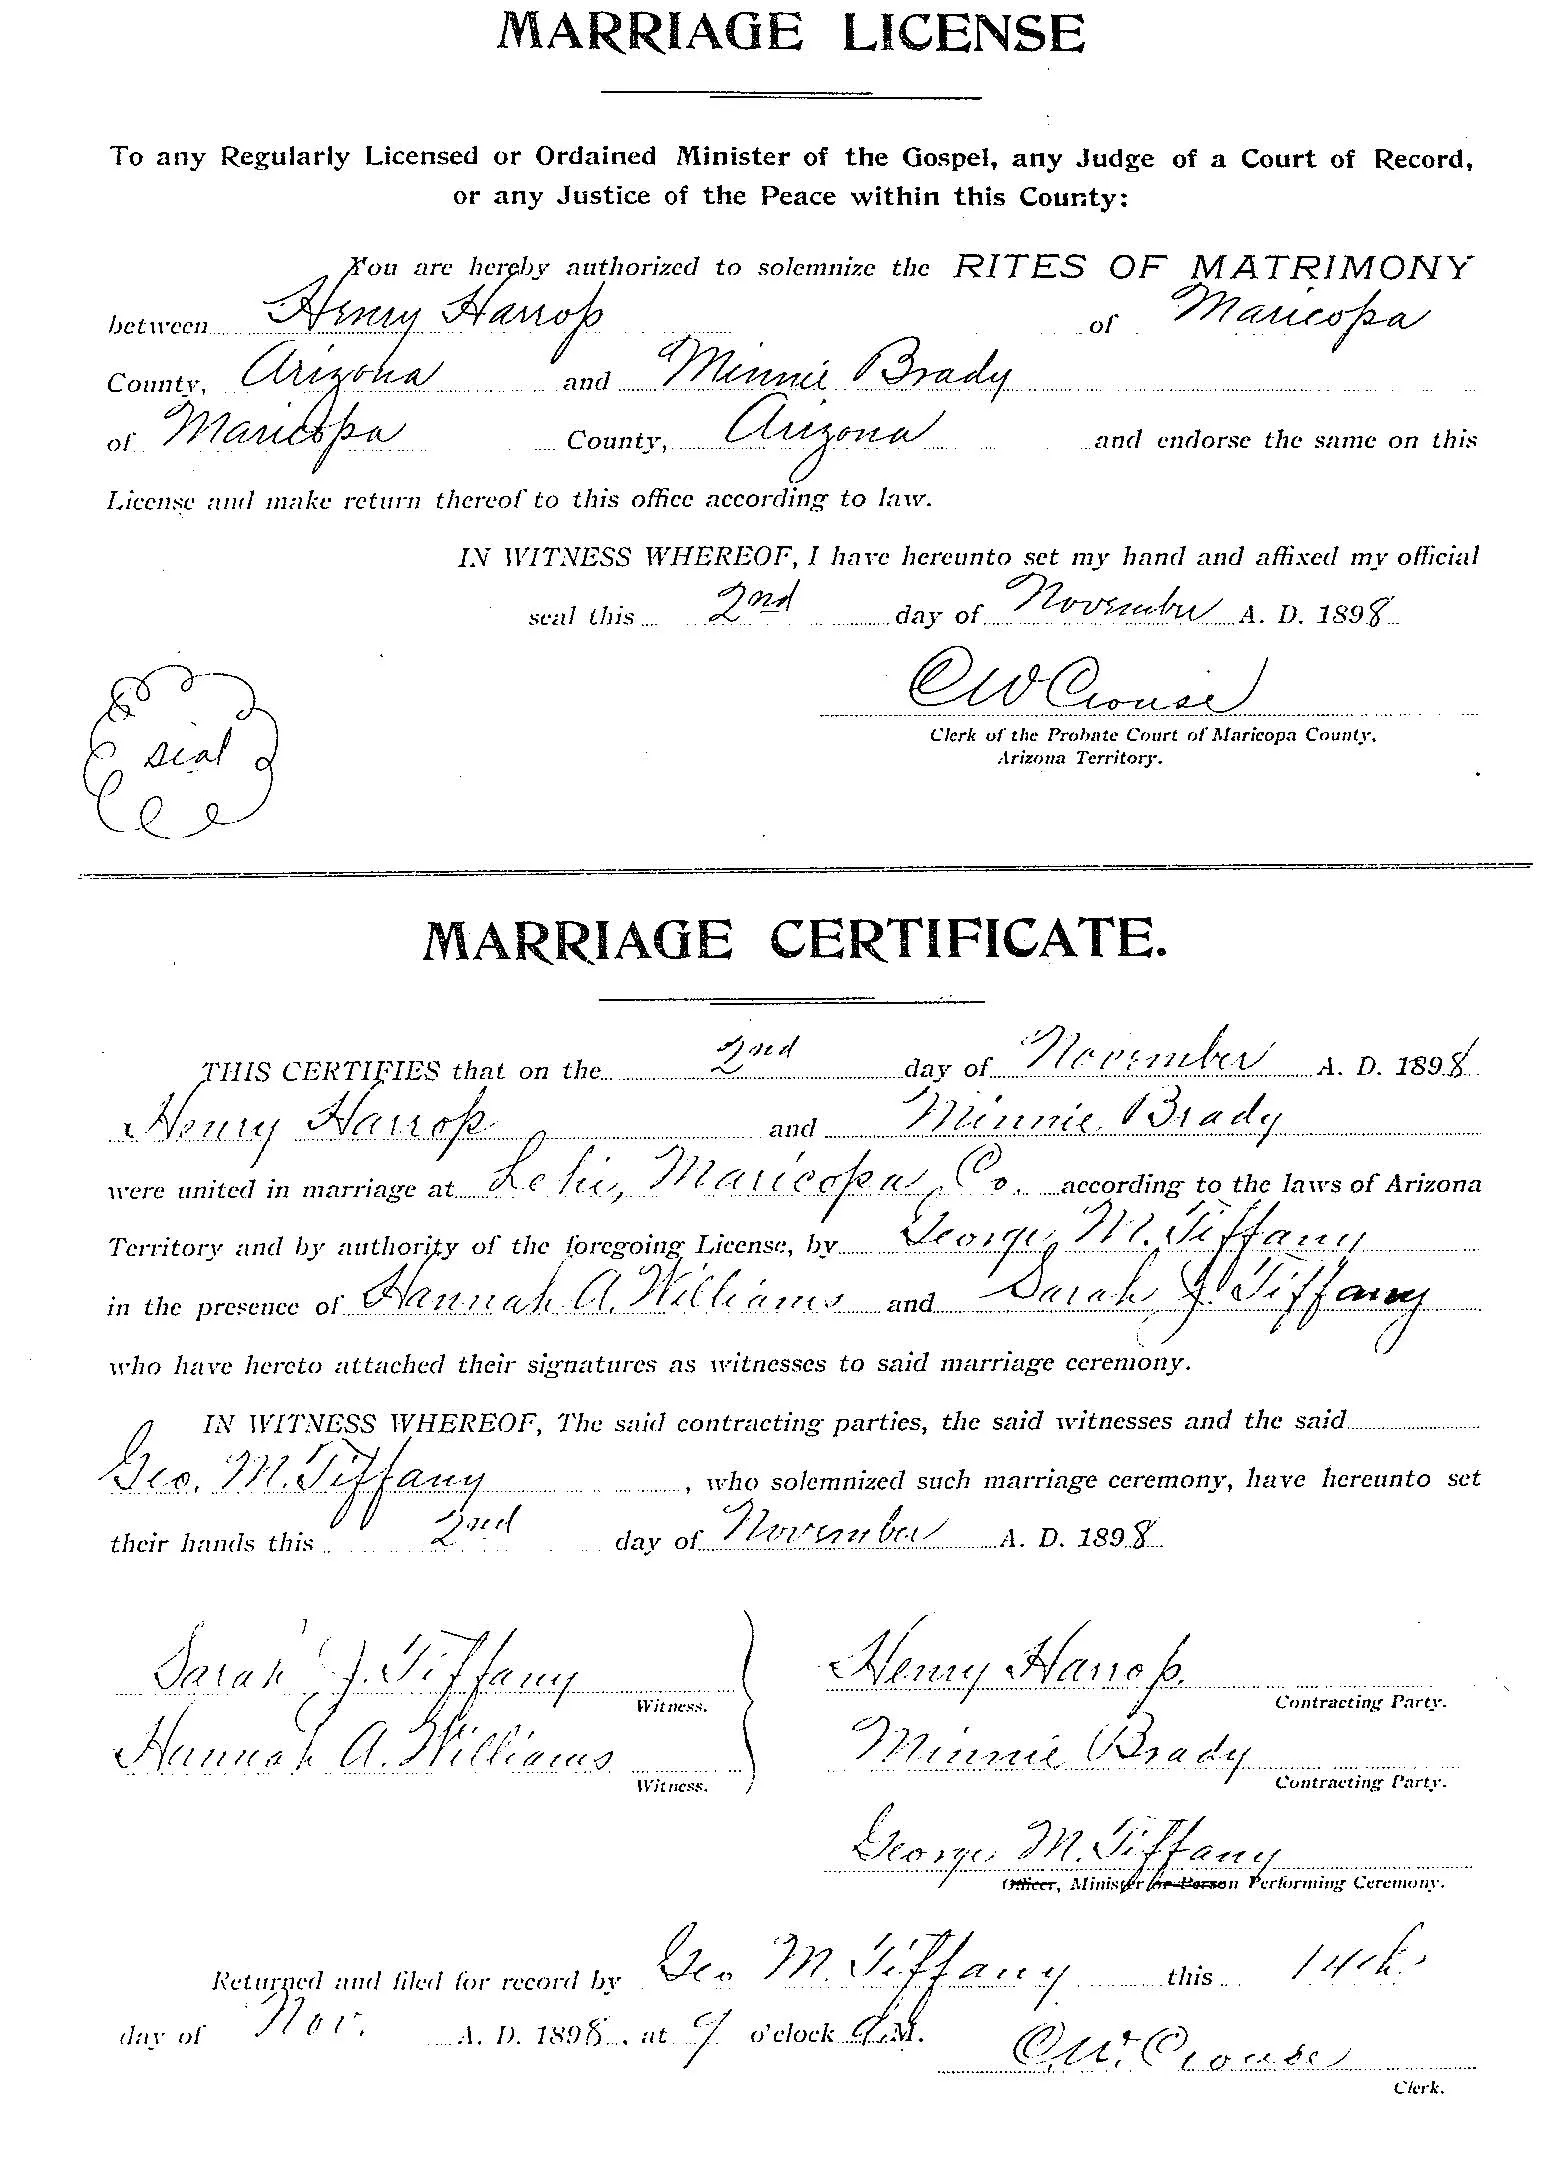 MARRIAGE LICENSE
To any Regularly Licensed or Ordained Minister of the Gospel, any Judge of a Court of Record,
or any Justice of the Peace within this County:
You are hereby authorized to solemnize the RITES OF MATRIMONY
between Henry Harrop of Maricopa
County, Arizona and Minnie Brady
of Maricopa County, Arizona and endorse the same on this
License and make return thereof to this office according to law.
IN WITNESS WHEREOF, I have hereunto set my hand and affixed my official
seal this 2nd day of November A. D. 1898
C W Crouse
Clerk of the Probate Court of Maricopa County,
Arizona Territory.
seal
MARRIAGE CERTIFICATE.
THIS CERTIFIES that on the 2nd day of November A. D. 1898
Henry Harrop and Minnie Brady
were united in marriage at Lehi, Maricopa Co. according to the laws of Arizona
Territory and by authority of the foregoing License, by George M. Tiffany
in the presence of Hannah A. Williams and Sarah J. Tiffany
who have hereto attached their signatures as witnesses to said marriage ceremony.
IN WITNESS WHEREOF, The said contracting parties, the said witnesses and the said
Geo. M. Tiffany, who solemnized such marriage ceremony, have hereunto set
their hands this 2nd day of November A. D. 1898
Sarah J. Tiffany
Witness.
Hannah A. Williams
Witness.
Henry Harrop.
Contracting Party.
Minnie Brady
Contracting Party.
George M. Tiffany
Officer, Minister or Person Performing Ceremony.
Returned and filed for record by Geo M. Tiffany this 14th
day of Nov. A. D. 1898, at 9 o'clock A.M.
C. W. Crouse
Clerk.